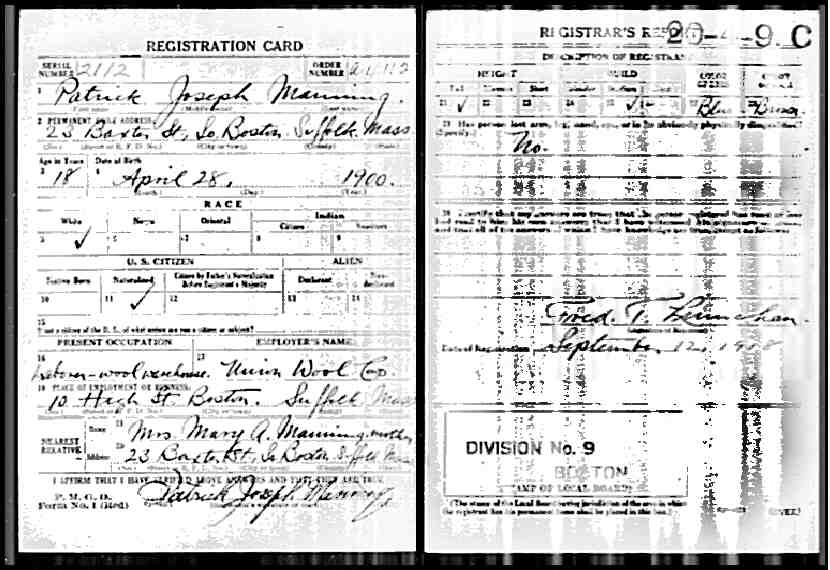 REGISTRATION CARD
SERIAL NUMBER 2112 ORDER NUMBER
1 Patrick Joseph Manning.
2 PERMANENT HOME ADDRESS:
23 Baxter St, So Boston Suffolk Mass
(No.) (Street or R. F. D. No.) (City or town) (County) (State)
Age in Years Date of Birth
3 18 4 April 28, 1900.
(Month.) (Day.) (Year.)
RACE
White Negro Oriental Indian
Citizen
5 ✓ 6 7 8 9
U. S. CITIZEN ALIEN
Native Born Naturalized Citizen by Father's Naturalization Before Registrant's Majority Declarant Non-declarant
10 11 ✓ 12 13 14
15
If not a citizen of the U. S., of what nation are you a citizen or subject?
PRESENT OCCUPATION EMPLOYER'S NAME
16 Laborer-wool warehouse. 17 Union Wool Co
18 PLACE OF EMPLOYMENT OR BUSINESS:
10 High St. Boston. Suffolk Mass
(No.) (Street or R. F. D. No.) (City or town) (County) (State)
NEAREST RELATIVE Name 19 Mrs. Mary A. Manning, mother
Address 20 23 Baxter St, So Boston Suffolk Mass
I AFFIRM THAT I HAVE VERIFIED ABOVE ANSWERS AND THAT THEY ARE TRUE
P. M. G. O.
Form No. 1 (Red) Patrick Joseph Manning
REGISTRAR'S REPORT
20-4-9. C
DESCRIPTION OF REGISTRANT
HEIGHT BUILD COLOR OF EYES COLOR OF HAIR
Tall Medium Short Slender Medium
21 ✓ 22 23 24 25 ✓ Blue Brown
29 Has person lost arm, leg, hand, eye, or is he obviously physically disqualified?
(Specify.) No.
30 I certify that my answers are true; that the person registered has read or has had read to him his own answers; that I have witnessed his signature or mark, and that all of his answers of which I have knowledge are true, except as follows:
Fred. T.
(Signature of Registrar)
Date of Registration September 12, 1918
DIVISION No. 9
BOSTON
(STAMP OF LOCAL BOARD)
(The stamp of the Local Board having jurisdiction of the area in which the registrant has his permanent home shall be placed in this box.)
(OVER)